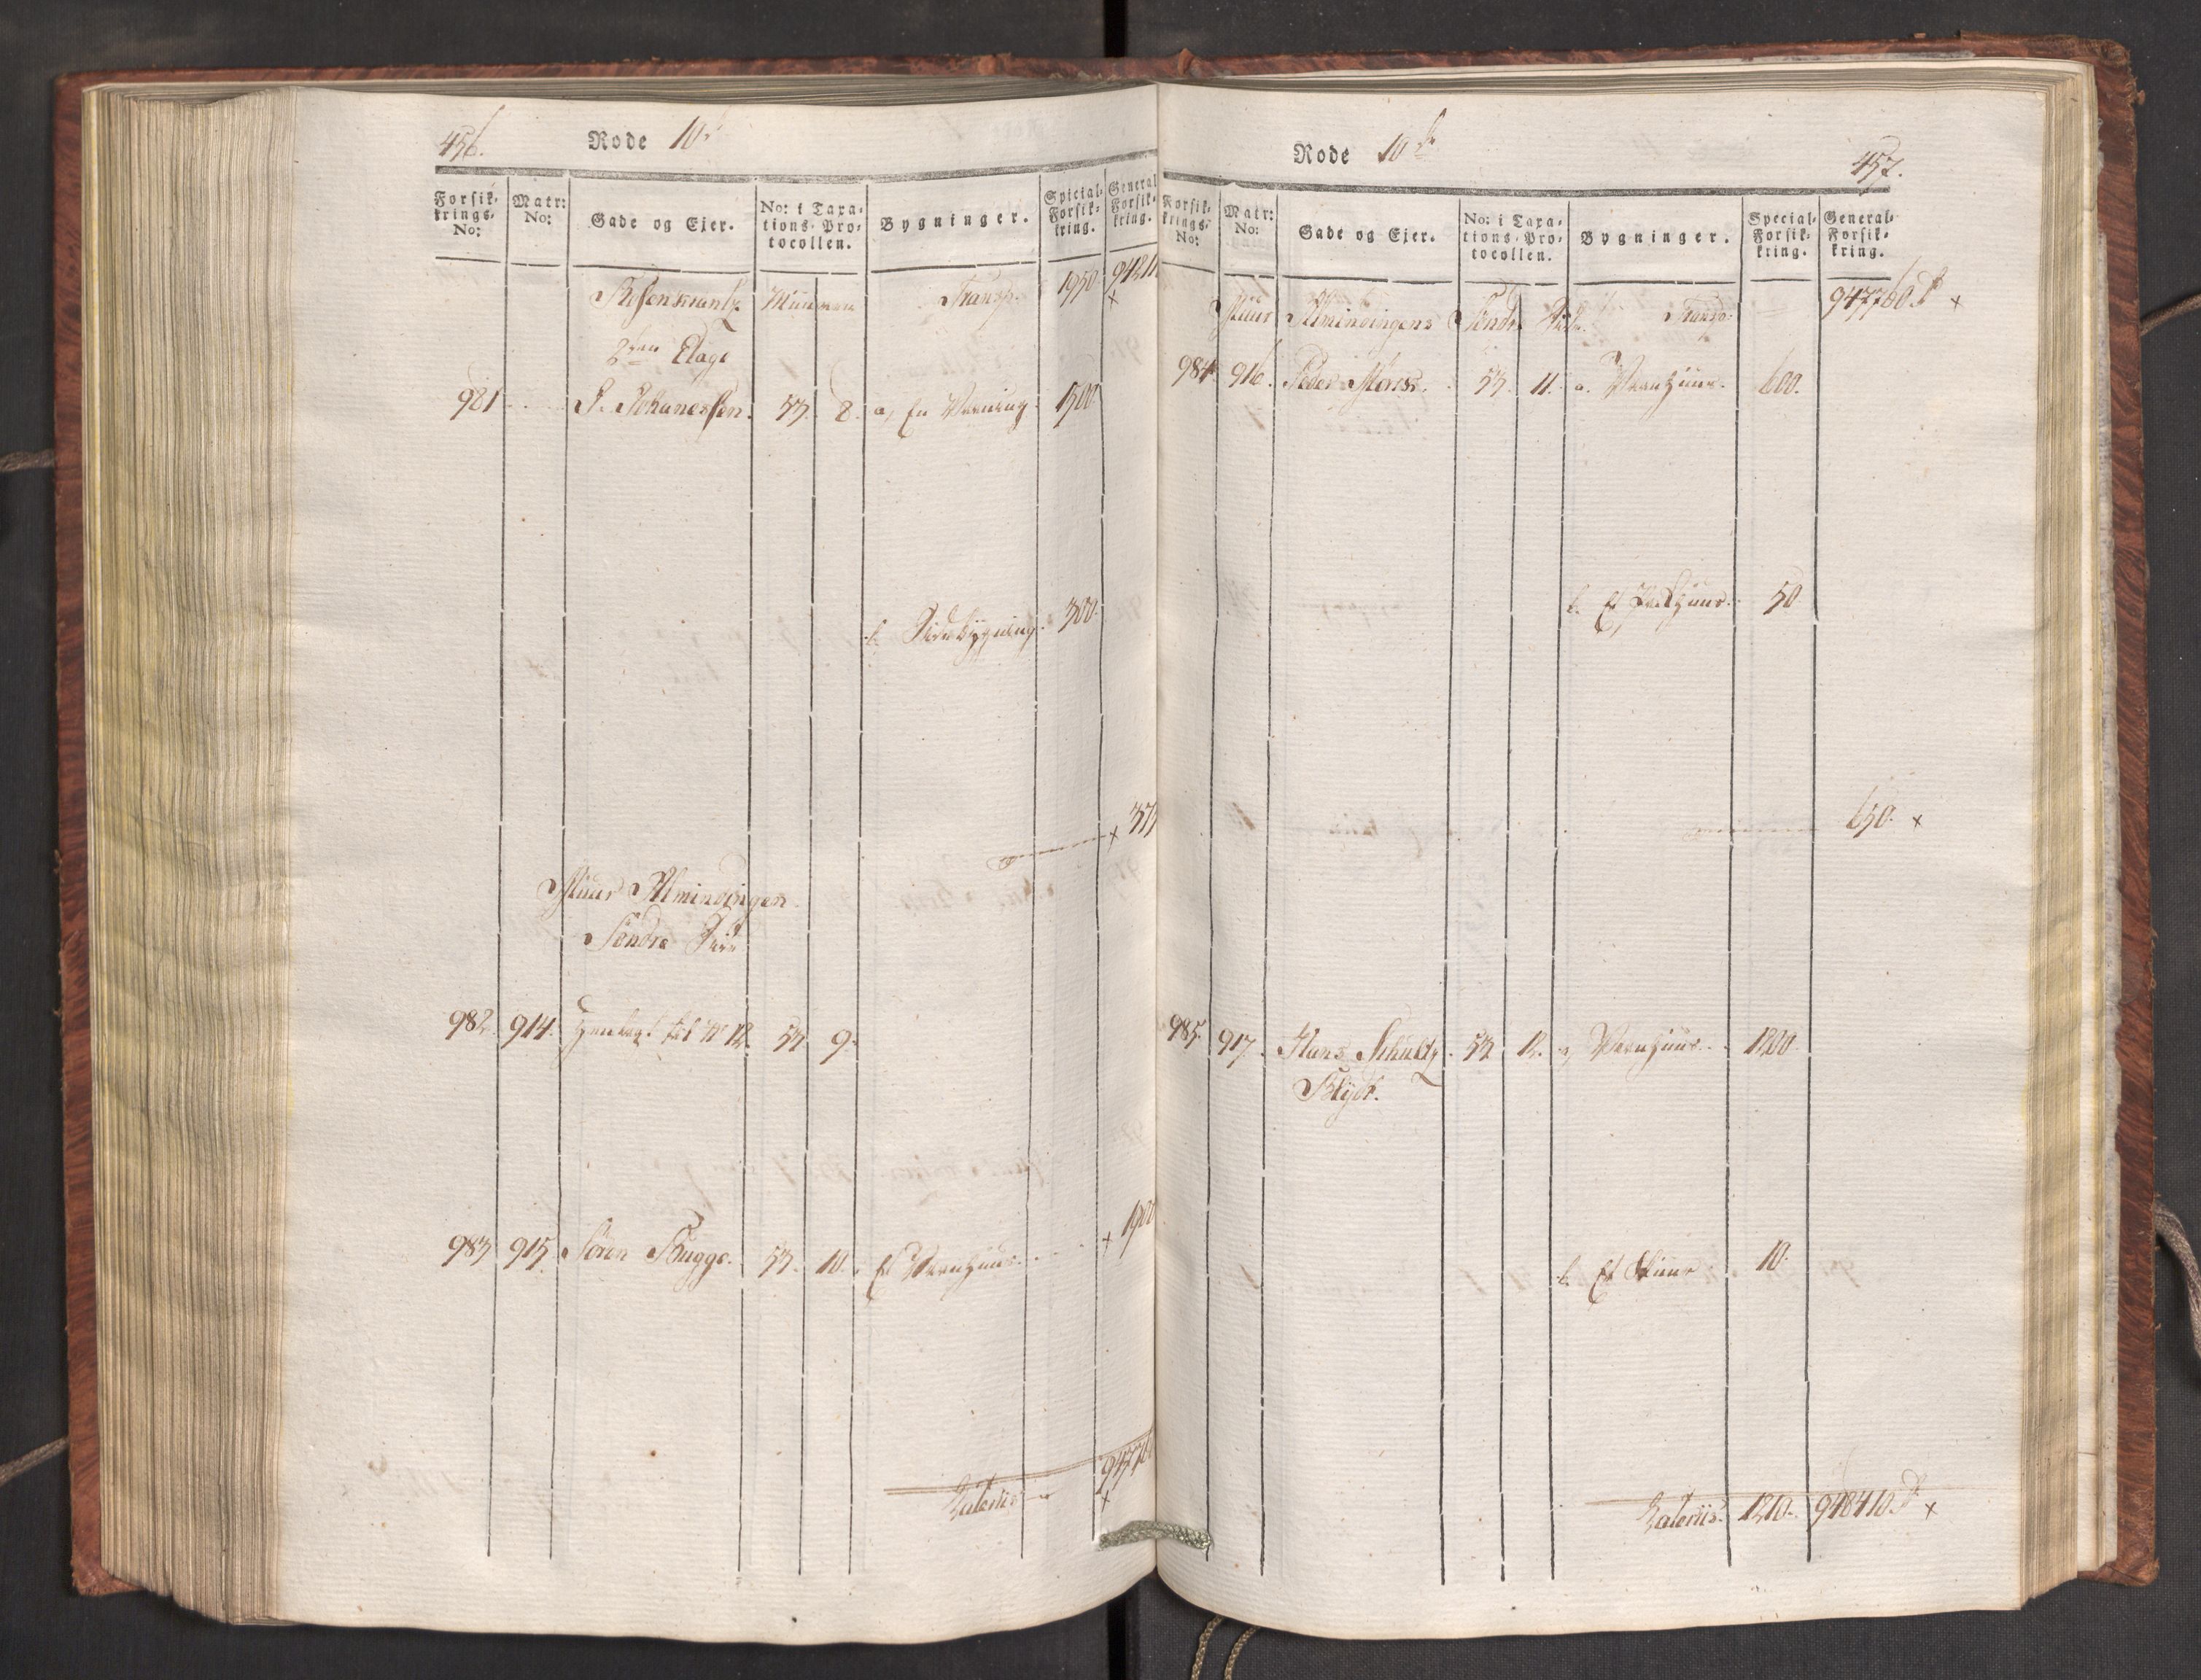 456. Rode 10de
Forsik-
krings-
No:
Matr:
No:
Gade og Ejer.
No: i Taxa-
tions-Pro-
tocollen.
Bygninger.
Special-
Forsik-
kring.
General
Forsik-
kring.
Rosenkrantz Muuren Transp. 1950
2den Etage
981 J. Johanessen. 53. 8. a, En Waaning 1500
b. Sidebygning. 300.
Muur Almindingen.
Søndre Side
982. 914. henlagt til No 12. 53. 9.
983 915. Søren Bugge. 53. 10. Et Waanhuus.
1900
×
Lateris
Rode 10de 457.
Forsik-
krings-
No:
Matr:
No:
Gade og Ejer.
No: i Taxa-
tions-Pro-
tocollen.
Bygninger.
Special-
Forsik-
kring.
General-
Forsik-
kring.
Muur Almindingens Søndre Side. Transp. 947760 ×
984 916. Peder 53. 11. a. Waanhuus. 600.
b. Et 50
650. ×
985. 917. Hans Schultz 53 12. a, Waanhuus. 1200
Blydt.
b. Et Skuur 10.
Lateris. 1210. 948410 ×